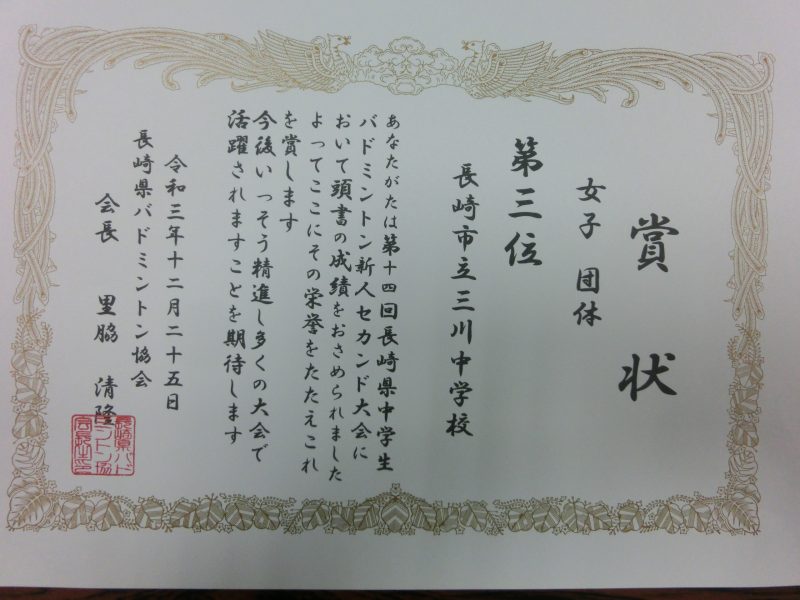 賞状
女子 団体
第三位
長崎市立三川中学校
あなたがたは第十四回長崎県中学生
バドミントン新人セカンド大会に
おいて頭書の成績をおさめられました
よってここにその栄誉をたたえこれ
を賞します
今後いっそう精進し多くの大会で
活躍されますことを期待します
令和三年十二月二十五日
長崎県バドミントン協会
会長 里脇 清隆